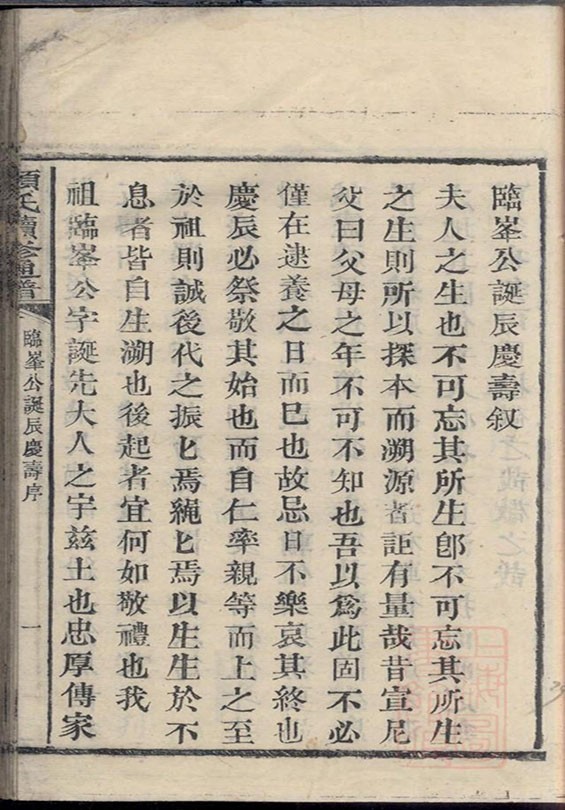 臨峯公誕辰慶壽叙
夫人之生也不可忘其所生卽不可忘其所生
之生則所以探本而溯源者詎有量哉昔宣尼
父曰父母之年不可不知也吾以爲此固不必
僅在逮養之日而已也故忌日不樂哀其終也
慶辰必祭敬其始也而自仁率親等而上之至
於祖則誠後代之振匕焉繩匕焉以生生於不
息者皆自生溯也後起者宜何如敬禮也我
祖臨峯公字誕先大人之宇兹土也忠厚傳家
氏續修宗譜
臨峯公誕辰慶壽序
一